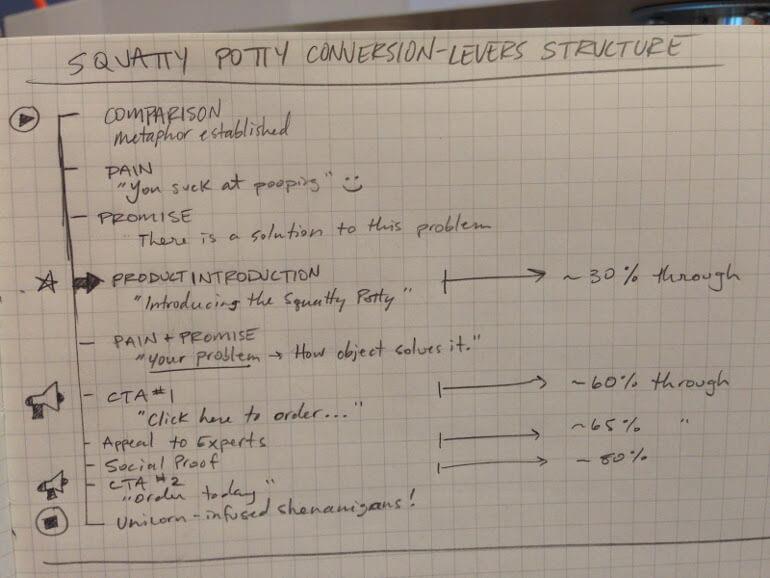 SQUATTY POTTY CONVERSION-LEVERS STRUCTURE
COMPARISON
metaphor established
PAIN
"You suck at pooping"
PROMISE
There is a solution to this problem
PRODUCT INTRODUCTION ~30% through
"Introducing the Squatty Potty"
PAIN + PROMISE
"Your problem → How object solves it."
CTA #1 ~60% through
"Click here to order..."
Appeal to Experts ~65% "
Social Proof ~80%
CTA #2
"Order today"
Unicorn-infused shenanigans!